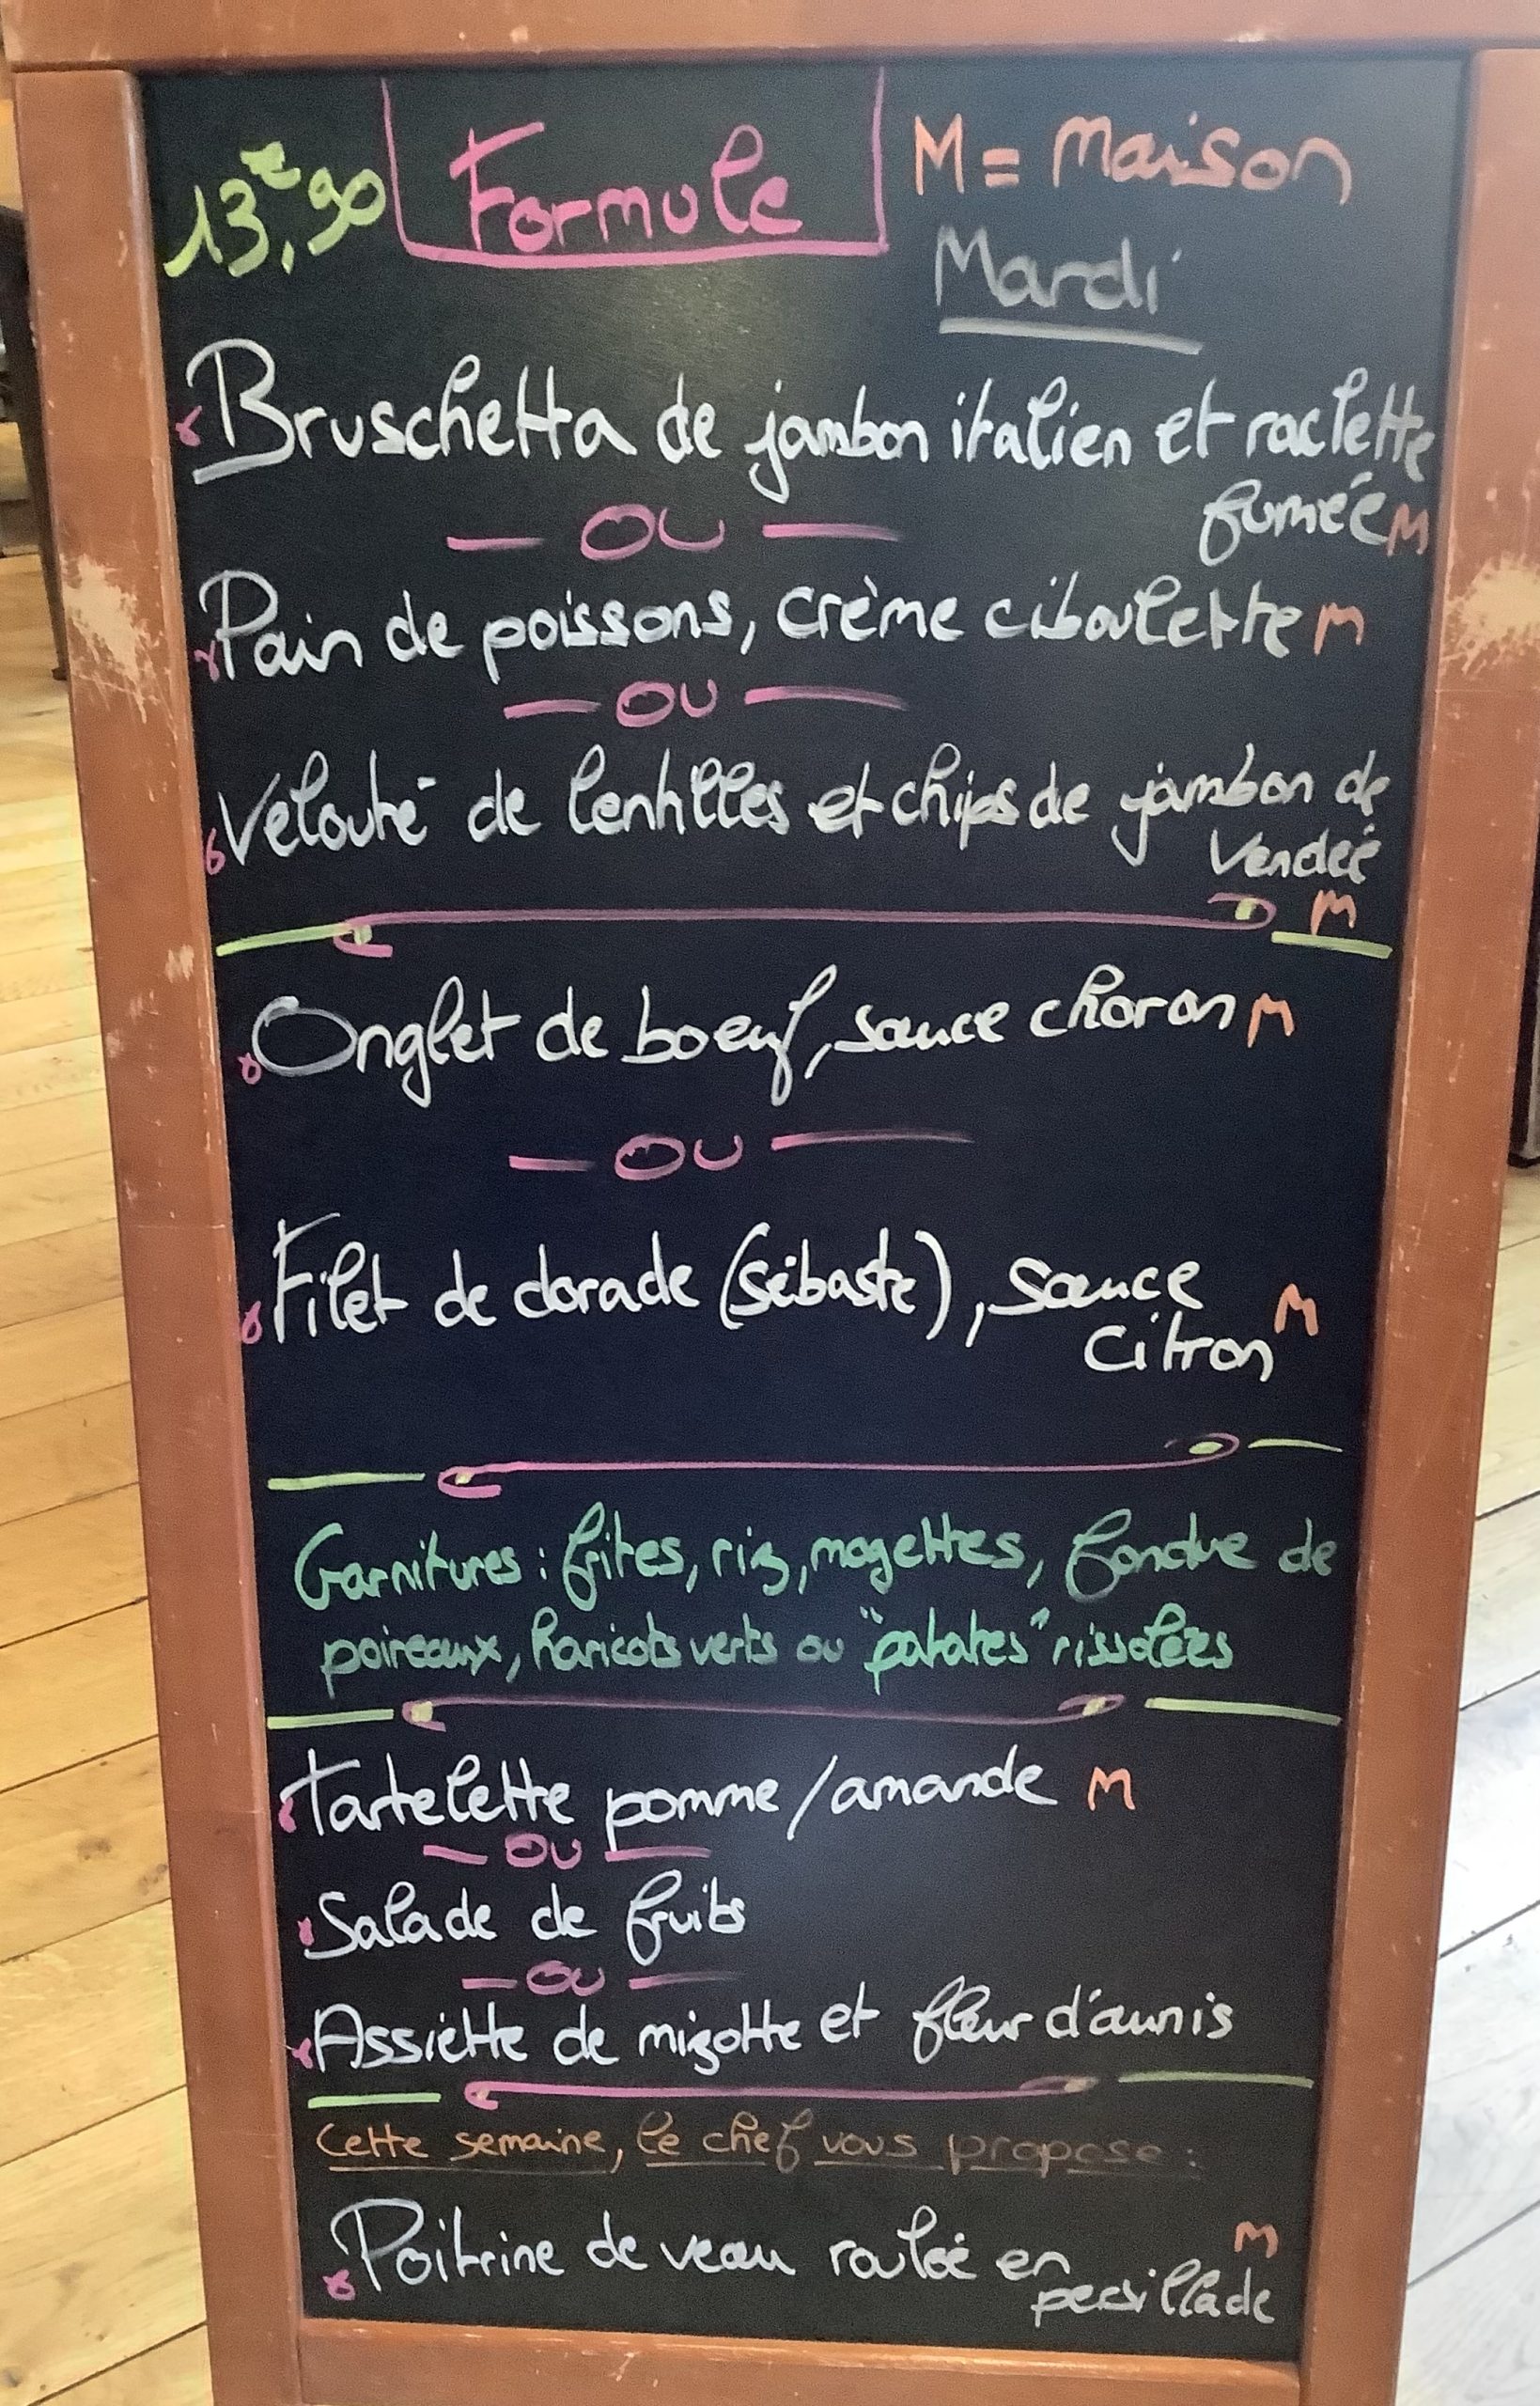 13€,90 Formule M = Maison
Mardi
Bruschetta de jambon italien et raclette
fumée M
— OU —
Pain de poissons, crème ciboulette M
— OU —
Velouté de lentilles et chips de jambon de
Vendée
M
Onglet de boeuf, sauce choron M
— OU —
Filet de dorade (sébaste), sauce
citron M
Garnitures : frites, riz, mogettes, fondue de
poireaux, haricots verts ou "patates" rissolées
Tartelette pomme / amande M
— OU —
Salade de fruits
— OU —
Assiette de mizotte et fleur d'aunis
Cette semaine, le chef vous propose :
Poitrine de veau roulée en M
persillade